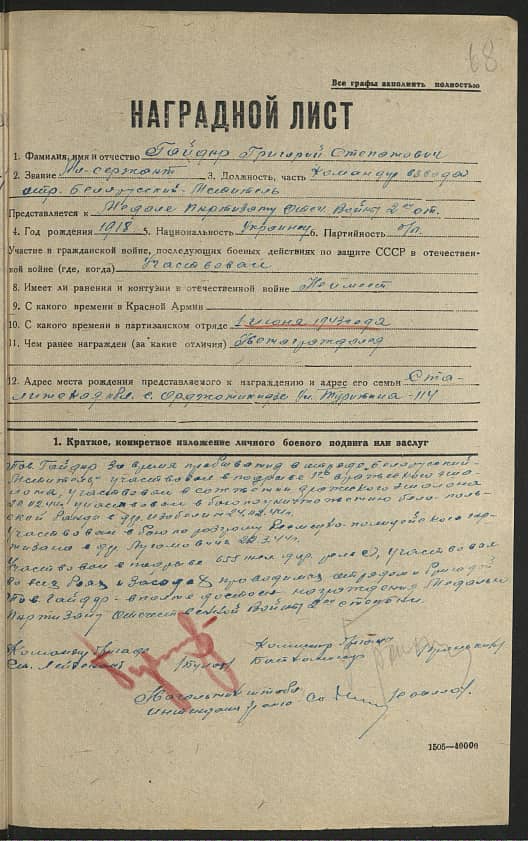 68
Все графы заполнить полностью
НАГРАДНОЙ ЛИСТ
1. Фамилия, имя и отчество Гайдар Григорий Степанович
2. Звание Мл-сержант 3. Должность, часть Командир взвода
отр. Белорусский-Мститель
Представляется к Медале Партизану Отеч. Войны 2ой ст.
4. Год рождения 1918 5. Национальность Украинец 6. Партийность б/п.
Участие в гражданской войне, последующих боевых действиях по защите СССР в отечествен-
ной войне (где, когда) Участвовал
8. Имеет ли ранения и контузии в отечественной войне Не имеет
9. С какого времени в Красной Армии
10. С какого времени в партизанском отряде 1 июня 1943 года
11. Чем ранее награжден (за какие отличия) Не награждался
12. Адрес места рождения представляемого к награждению и адрес его семьи Ста-
линская обл. г. Орджоникидзе ул. 114
1. Краткое, конкретное изложение личного боевого подвига или заслуг
Тов. Гайдар за время пребывания в отряде „Белорусский-
Мститель" участвовал в подрыве 1го вражеского эше-
лона, участвовал в сожжении вражеского эшелона
участвовал в бою по уничтожению бело-поль-
ской банды в др. 24.02.44г.
Участвовал в бою по разгрому Немецко-полицейского гар-
низона в др.
Участвовал в подрыве 655 жел. дор. рельс, участвовал
во всех боях и засадах проводимых отрядом и бригадой
Тов. Гайдар - вполне достоен награждения Медалью
Партизану Отечественной Войны 2ой степени.
Командир бригады Комиссар бригады
Ст. Лейтенант /Булат/ Бат. Комиссар
Начальник штаба
Интендант
1505—40000